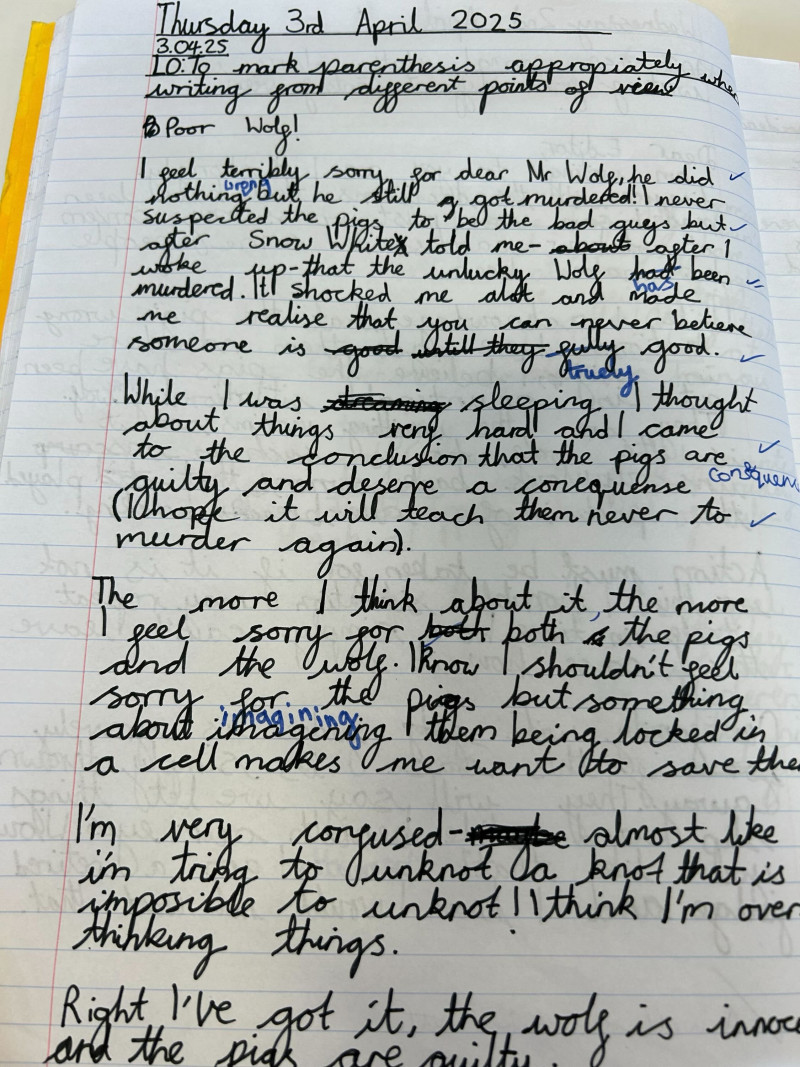 Thursday 3rd April 2025
3.04.25
LO: To mark parenthesis appropiately whe
writing from different points of view
Poor Wolf!
I feel terribly sorry for dear Mr Wolf, he did
nothing wrong but he still got murdered! I never
suspected the pigs to be the bad guys but
after Snow White told me- about after I
woke up-that the unlucky Wolf had been
murdered. It shocked me alot and has made
me realise that you can never believe
someone is good untill they truely good.
While I was dreaming sleeping I thought
about things very hard and I came
to the conclusion that the pigs are
guilty and deserve a conequense consequen
(I hope it will teach them never to
murder again).
The more I think about it, the more
I feel sorry for both both the pigs
and the wolf. I know I shouldn't feel
sorry for the pigs but something
about imagining imagening them being locked in
a cell makes me want to save the
I'm very confused- maybe almost like
i'm tring to unknot a knot that is
imposible to unknot! I think I'm over
thinking things.
Right I've got it, the wolf is innoc
and the pigs are guilty.